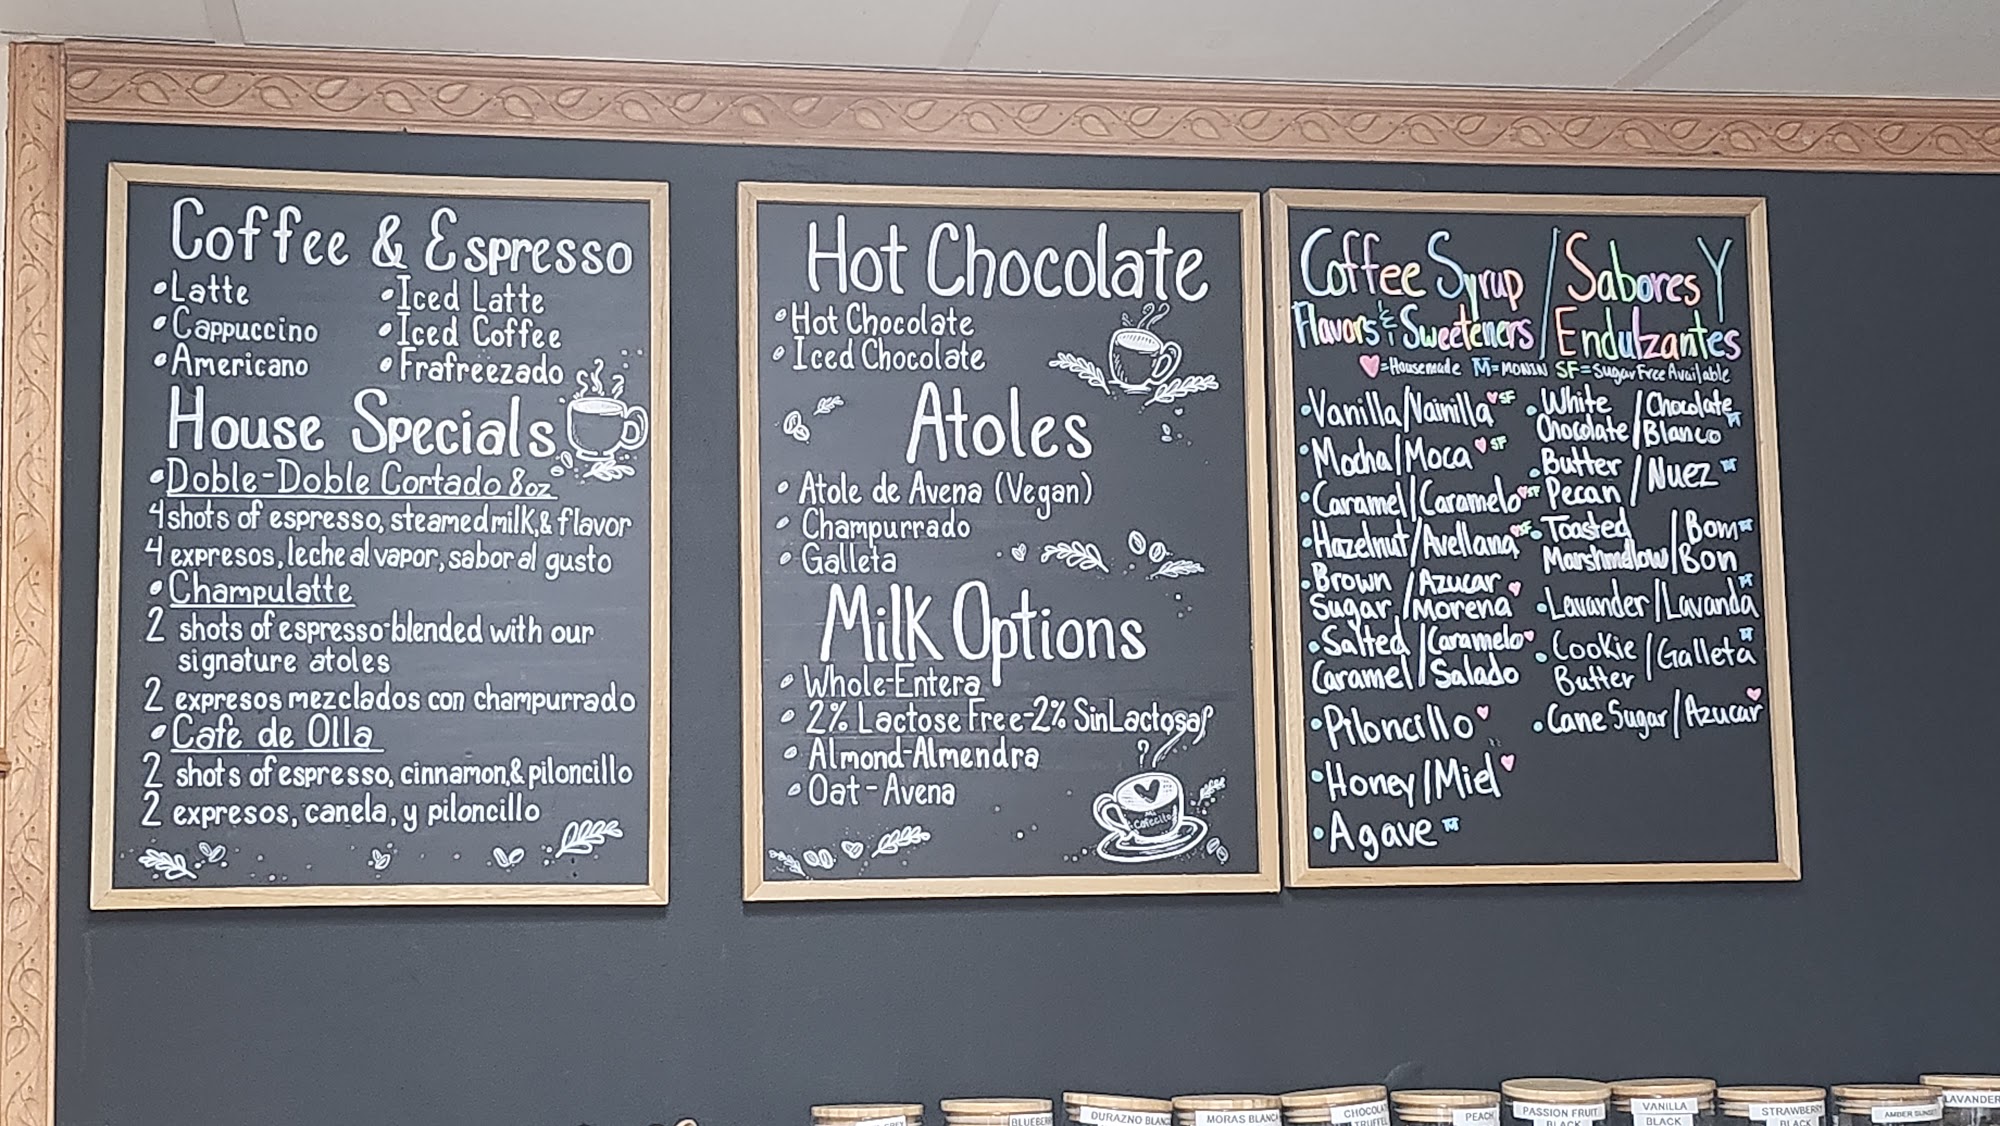 Coffee & Espresso
•Latte
•Cappuccino
•Americano
•Iced Latte
•Iced Coffee
•Frafreezado
House Specials
•Doble-Doble Cortado 8oz
4 shots of espresso, steamed milk, & flavor
4 expresos, leche al vapor, sabor al gusto
•Champulatte
2 shots of espresso-blended with our
signature atoles
2 expresos mezclados con champurrado
•Cafe de Olla
2 shots of espresso, cinnamon, & piloncillo
2 expresos, canela, y piloncillo
Hot Chocolate
•Hot Chocolate
•Iced Chocolate
Atoles
•Atole de Avena (Vegan)
•Champurrado
•Galleta
Milk Options
•Whole-Entera
•2% Lactose Free-2% Sin Lactosa
•Almond-Almendra
•Oat-Avena
Cafecito
Coffee Syrup / Sabores Y
Flavors & Sweeteners / Endulzantes
♥=Housemade M=MONIN SF=Sugar Free Available
•Vanilla/Vainilla ♥ SF
•Mocha/Moca ♥ SF
•Caramel/Caramelo ♥ SF
•Hazelnut/Avellana ♥ SF
•Brown / Azucar ♥
Sugar / Morena
•Salted / Caramelo ♥
Caramel / Salado
•Piloncillo ♥
•Honey/Miel ♥
•Agave M
•White / Chocolate M
Chocolate / Blanco
•Butter / Nuez M
Pecan
•Toasted / Bom M
Marshmallow / Bon
•Lavander/Lavanda M
•Cookie / Galleta M
Butter
•Cane Sugar/Azucar ♥
DURAZNO BLANC
MORAS BLANCA
CHOCOLAT
TRUFFLE
PEACH
PASSION FRUIT
BLACK
VANILLA
BLACK
STRAWBERRY
BLACK
AMBER SUNSET
LAVANDER